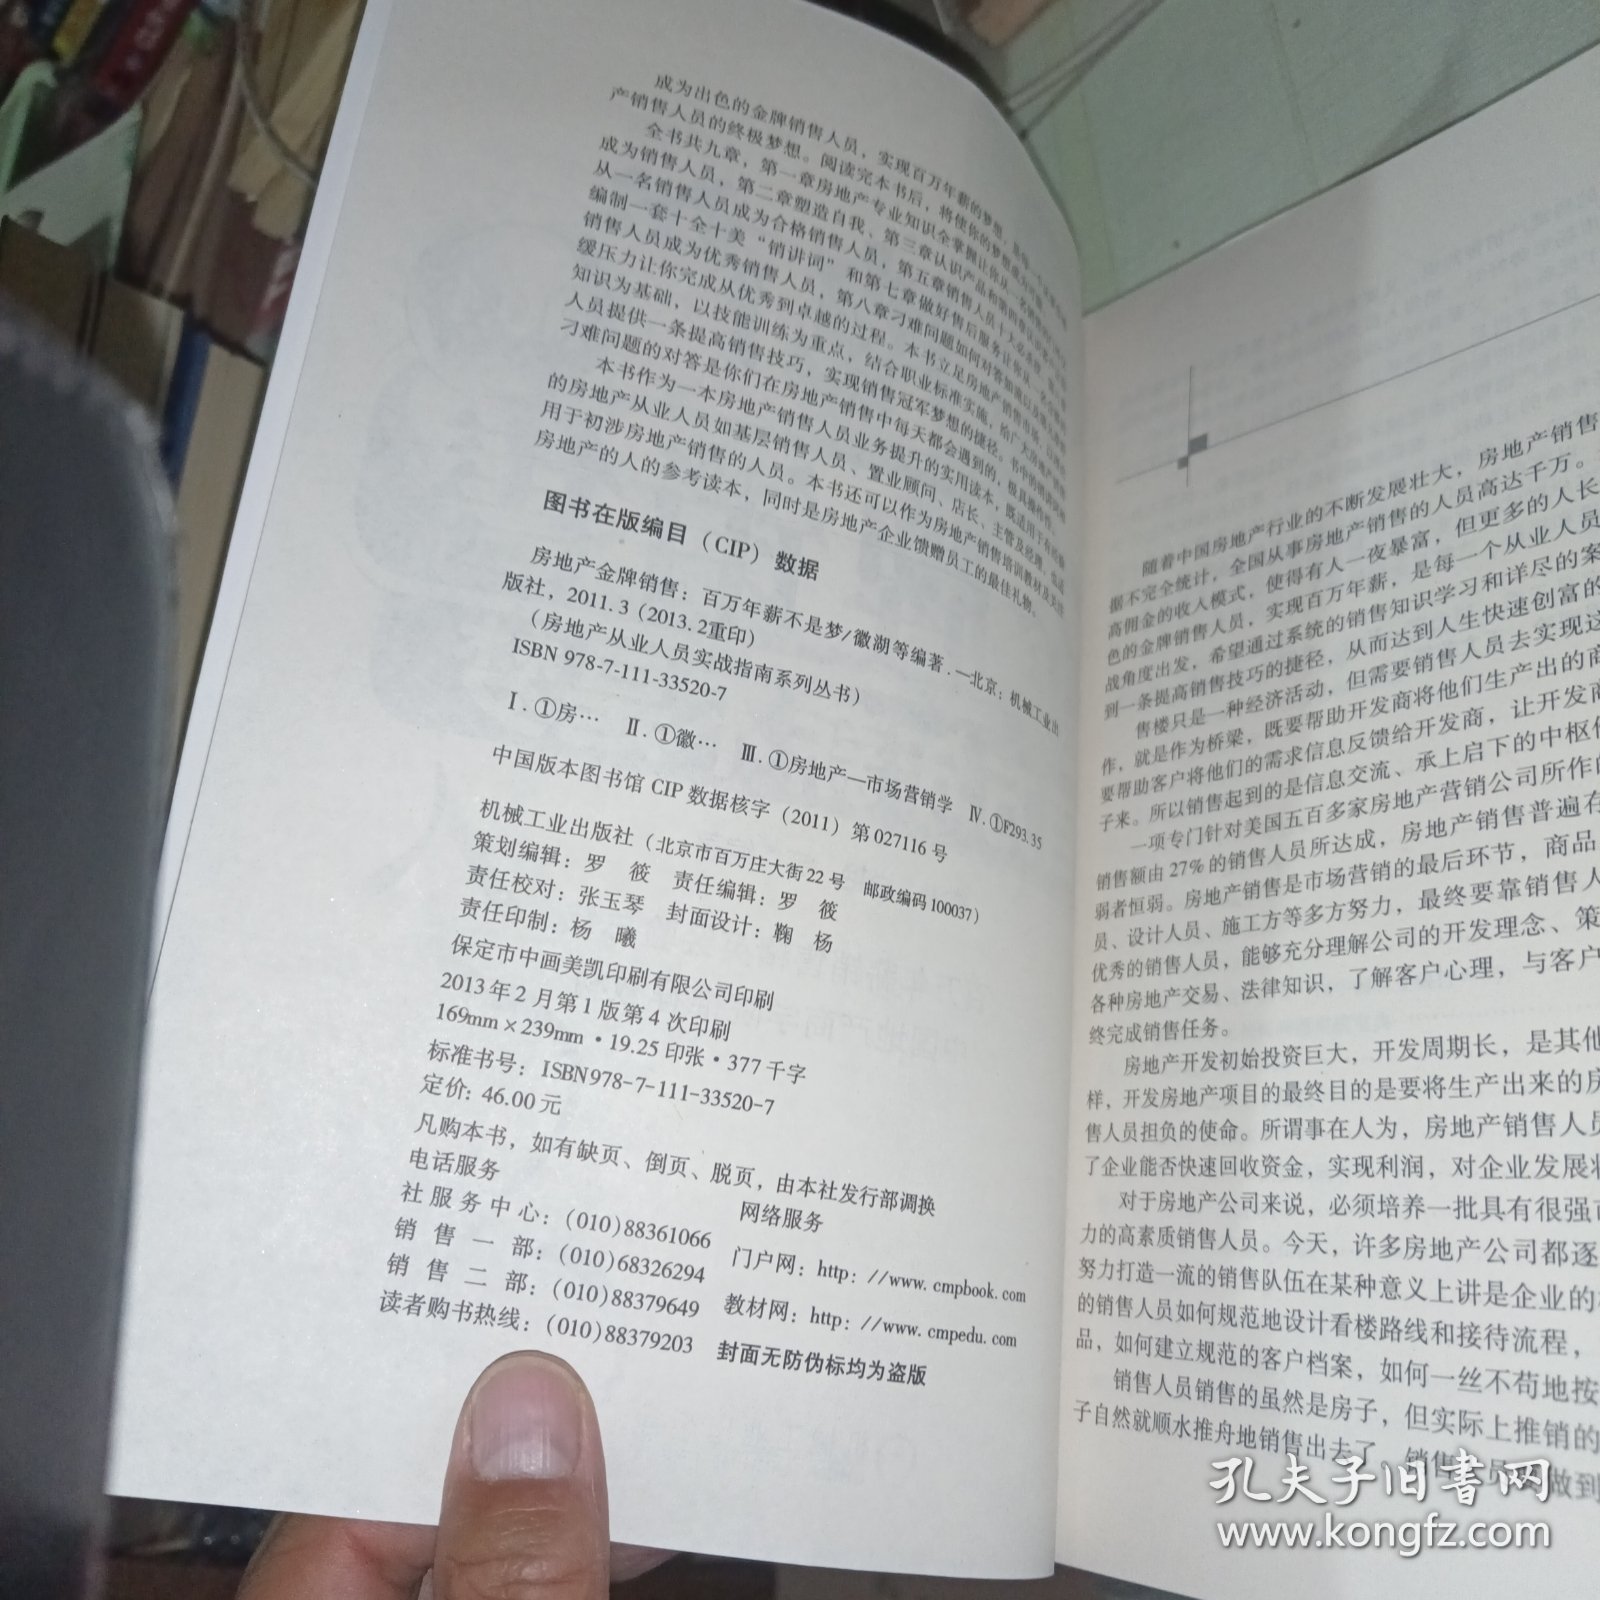 成为出色的金牌销售人员，实现百万年薪的梦想，是每一个
产销售人员的终极梦想。阅读完本书后，将使你的梦想成为可能。
全书共九章，第一章房地产专业知识全掌握让你从一名
成为销售人员，第二章塑造自我、第三章认识产品和第四章
从一名销售人员成为合格销售人员，第五章销售人员十大必
编制一套十全十美“销讲词”和第七章做好售后服务让你从一名合格
销售人员成为优秀销售人员，第八章刁难问题如何对答如流以及
缓压力让你完成从优秀到卓越的过程。本书立足房地产销售市场，以
知识为基础，以技能训练为重点，结合职业标准实施，给广大房地产销售
人员提供一条提高销售技巧，实现销售冠军梦想的捷径。书中的
刁难问题的对答是你们在房地产销售中每天都会遇到的，极具操作性。
本书作为一本房地产销售人员业务提升的实用读本，既适用于有经验
的房地产从业人员如基层销售人员、置业顾问、店长、主管及经理，也适
用于初涉房地产销售的人员。本书还可以作为房地产销售培训教材及关注
房地产的人的参考读本，同时是房地产企业馈赠员工的最佳礼物。
图书在版编目（CIP）数据
房地产金牌销售：百万年薪不是梦/徽湖等编著.—北京：机械工业出
版社，2011.3（2013.2重印）
（房地产从业人员实战指南系列丛书）
ISBN 978-7-111-33520-7
Ⅰ.①房… Ⅱ.①徽… Ⅲ.①房地产—市场营销学 Ⅳ.①F293.35
中国版本图书馆 CIP 数据核字（2011）第 027116 号
机械工业出版社（北京市百万庄大街22号 邮政编码100037）
策划编辑：罗 筱 责任编辑：罗 筱
责任校对：张玉琴 封面设计：鞠 杨
责任印制：杨 曦
保定市中画美凯印刷有限公司印刷
2013年2月第1版第4次印刷
169mm×239mm·19.25印张·377千字
标准书号：ISBN978-7-111-33520-7
定价：46.00元
凡购本书，如有缺页、倒页、脱页，由本社发行部调换
电话服务 网络服务
社服务中心：(010)88361066 门户网：http：//www.cmpbook.com
销售一部：(010)68326294 教材网：http：//www.cmpedu.com
销售二部：(010)88379649 封面无防伪标均为盗版
读者购书热线：(010)88379203
随着中国房地产行业的不断发展壮大，房地产销售
据不完全统计，全国从事房地产销售的人员高达千万。
高佣金的收入模式，使得有人一夜暴富，但更多的人长
色的金牌销售人员，实现百万年薪，是每一个从业人员
战角度出发，希望通过系统的销售知识学习和详尽的案
到一条提高销售技巧的捷径，从而达到人生快速创富的
售楼只是一种经济活动，但需要销售人员去实现这
作，就是作为桥梁，既要帮助开发商将他们生产出的商
要帮助客户将他们的需求信息反馈给开发商，让开发商
子来。所以销售起到的是信息交流、承上启下的中枢作
一项专门针对美国五百多家房地产营销公司所作的
销售额由27%的销售人员所达成，房地产销售普遍存
弱者恒弱。房地产销售是市场营销的最后环节，商品
员、设计人员、施工方等多方努力，最终要靠销售人
优秀的销售人员，能够充分理解公司的开发理念、策
各种房地产交易、法律知识，了解客户心理，与客户
终完成销售任务。
房地产开发初始投资巨大，开发周期长，是其他
样，开发房地产项目的最终目的是要将生产出来的房
售人员担负的使命。所谓事在人为，房地产销售人员
了企业能否快速回收资金，实现利润，对企业发展
对于房地产公司来说，必须培养一批具有很强
力的高素质销售人员。今天，许多房地产公司都逐
努力打造一流的销售队伍在某种意义上讲是企业的
的销售人员如何规范地设计看楼路线和接待流程，
品，如何建立规范的客户档案，如何一丝不苟地按
销售人员销售的虽然是房子，但实际上推销的
子自然就顺水推舟地销售出去了。销售人员要做到
孔夫子旧书网
www.kongfz.com